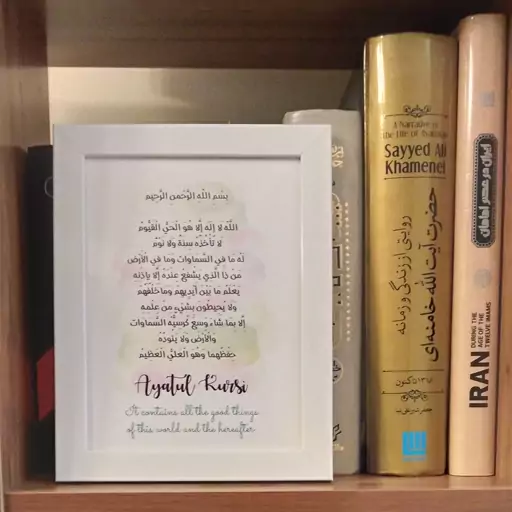 بسم الله الرَّحمن الرَّحيم
اللَّهُ لا إِلَهَ إِلَّا هُوَ الْحَيُّ الْقَيُّومُ
لا تَأْخُذُهُ سِنَةٌ وَلا نَوْمٌ
لَهُ مَا فِي السَّمَاوَاتِ وَمَا فِي الْأَرْضِ
مَن ذَا الَّذِي يَشْفَعُ عِنْدَهُ إِلَّا بِإِذْنِهِ
يَعْلَمُ مَا بَيْنَ أَيْدِيهِمْ وَمَا خَلْفَهُمْ
وَلا يُحِيطُونَ بِشَيْءٍ مِنْ عِلْمِهِ
إِلَّا بِمَا شَاءَ وَسِعَ كُرْسِيُّهُ السَّمَاوَاتِ
وَالْأَرْضَ وَلا يَئُودُهُ
حِفْظُهُمَا وَهُوَ الْعَلِيُّ الْعَظِيمُ
Ayatul Kursi
It contains all the good things
of this world and the hereafter
A Narrative of
the Life of
Sayyed Ali
Khamenei
روایتی از زندگی و زمانه
حضرت آیت الله خامنه‌ای
ایران در عصر امامان
IRAN
DURING THE
AGE OF THE
TWELVE IMAMS